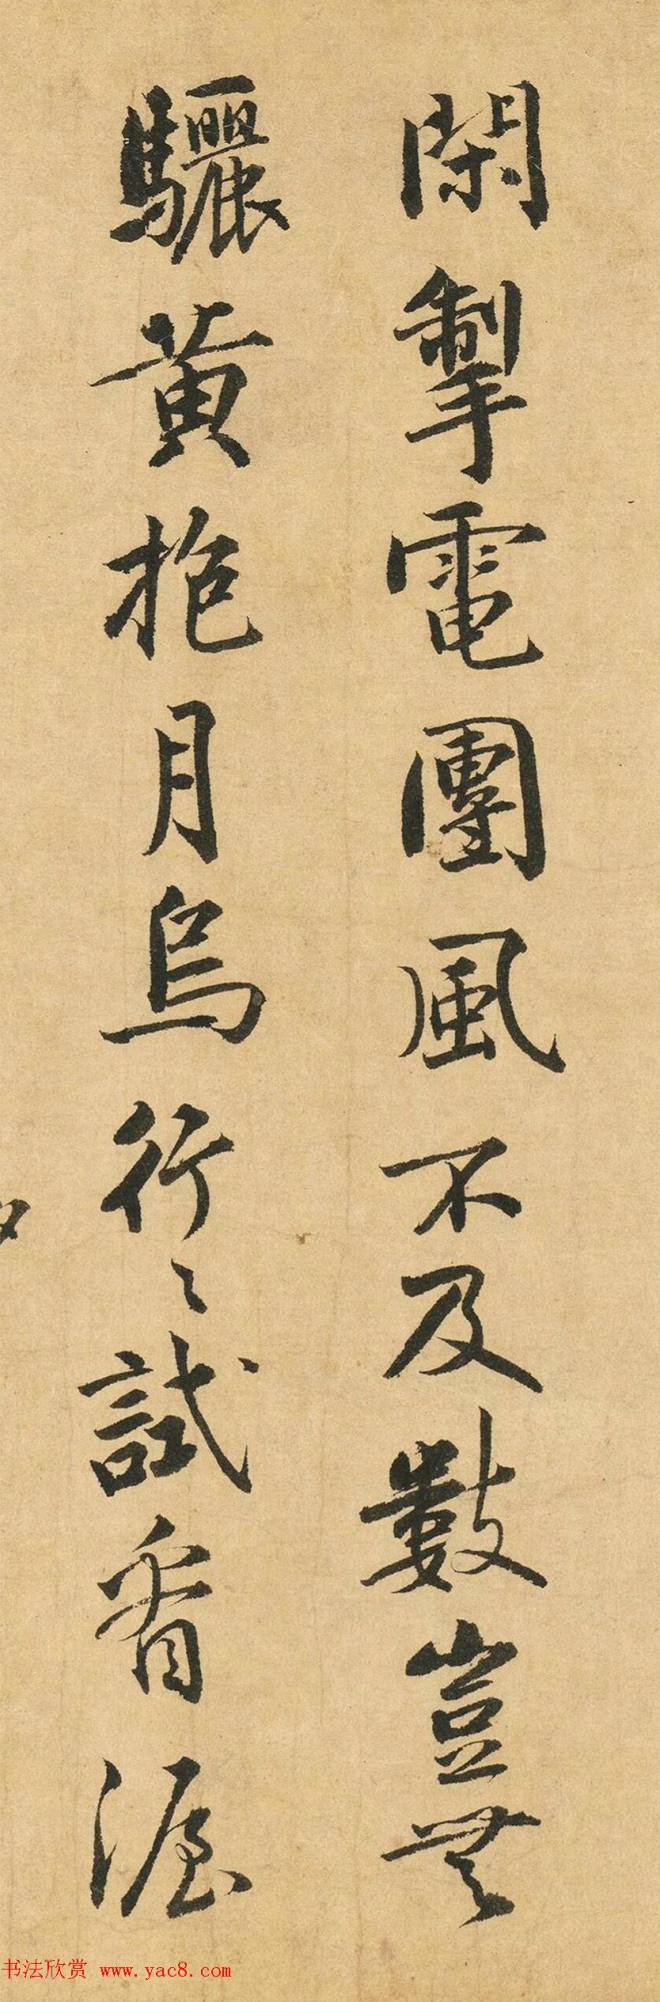 閑掣電團風不及數豈無
驪黃抱月烏行〻試看渥
书法欣赏 www.yac8.com